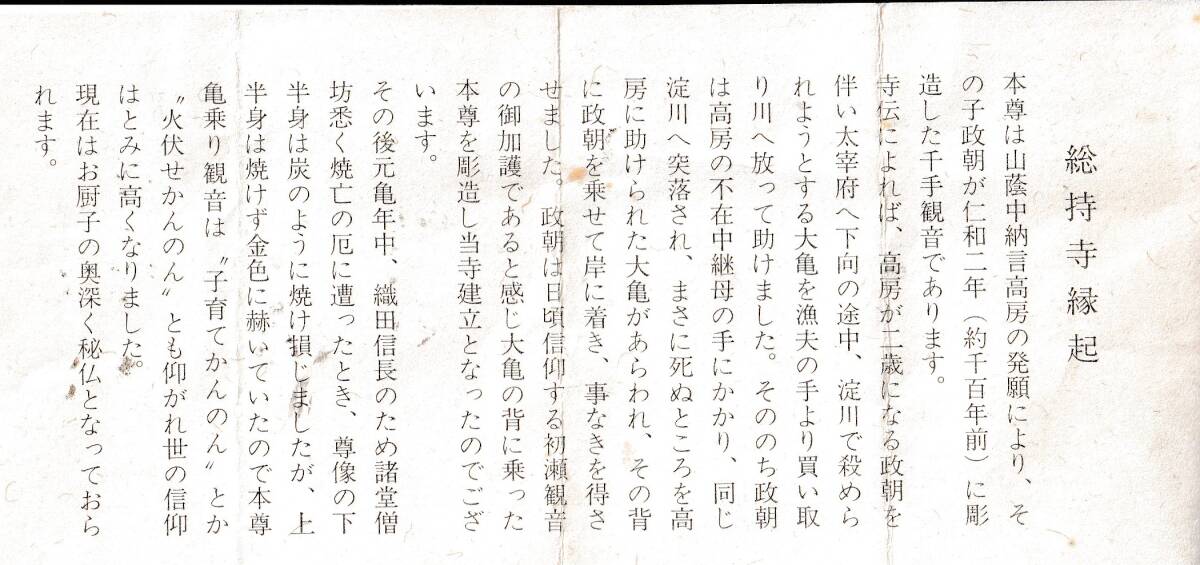 総持寺縁起
本尊は山蔭中納言高房の発願により、そ
の子政朝が仁和二年（約千百年前）に彫
造した千手観音であります。
寺伝によれば、高房が二歳になる政朝を
伴い太宰府へ下向の途中、淀川で殺めら
れようとする大亀を漁夫の手より買い取
り川へ放って助けました。そののち政朝
は高房の不在中継母の手にかかり、同じ
淀川へ突落され、まさに死ぬところを高
房に助けられた大亀があらわれ、その背
に政朝を乗せて岸に着き、事なきを得さ
せました。政朝は日頃信仰する初瀬観音
の御加護であると感じ大亀の背に乗った
本尊を彫造し当寺建立となったのでござ
います。
その後元亀年中、織田信長のため諸堂僧
坊悉く焼亡の厄に遭ったとき、尊像の下
半身は炭のように焼け損じましたが、上
半身は焼けず金色に赫いていたので本尊
亀乗り観音は〝子育てかんのん〟とか
〝火伏せかんのん〟とも仰がれ世の信仰
はとみに高くなりました。
現在はお厨子の奥深く秘仏となっておら
れます。